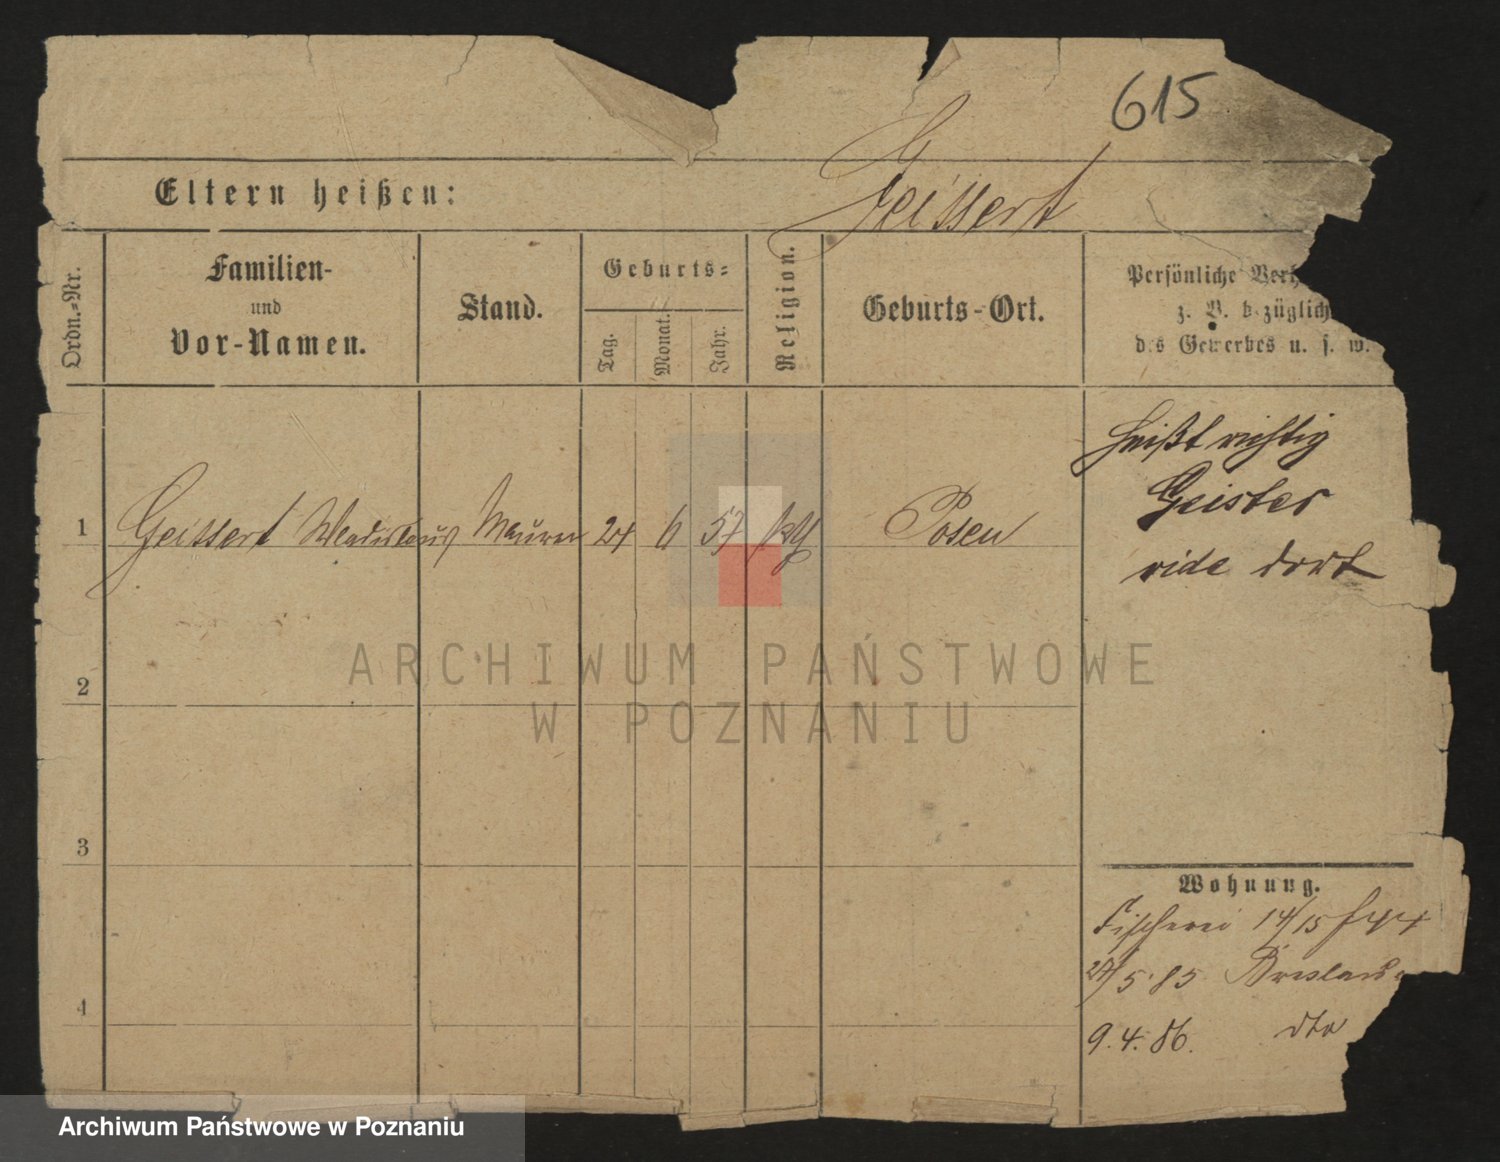 615
Eltern heißen:
Geissert
Ordn.-Nr.
Familien-
und
Vor-Namen.
Stand.
Geburts-
Tag.
Monat.
Jahr.
Religion.
Geburts-Ort.
Persönliche
z. B. bezüglich
des Gewerbes u. s. w.
1
Geissert Wladislaus Maurer 24 6 57 Posen
heißt richtig
Geisler
vide dort
ARCHIWUM PAŃSTWOWE
W POZNANIU
2
3
4
Wohnung.
Fischerei 14/15
27/5 85 Breslau
9. 4. 86. dto
Archiwum Państwowe w Poznaniu